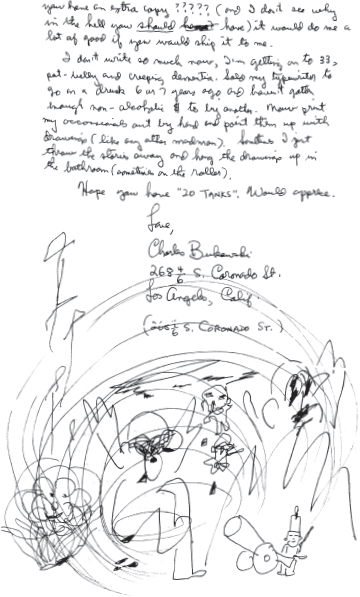 you have an extra copy ????? (and I don't see why
in the hell you should have) it would do me a
lot of good if you would ship it to me.
I don't write so much now, I'm getting on to 33,
pot-belly and creeping dementia. Sold my typewriter to
go on a drunk 6 or 7 years ago and haven't gotten
enough non-alcoholic $ to buy another. Now print
my occasionals out by hand and point them up with
drawings (like any other madman). Sometimes I just
throw the stories away and hang the drawings up in
the bathroom (sometimes on the roller).
Hope you have "20 TANKS". Would apprec.
Love,
Charles Bukowski
268 4/6 S. Coronado St.
Los Angeles, Calif.
S. CORONADO ST.)